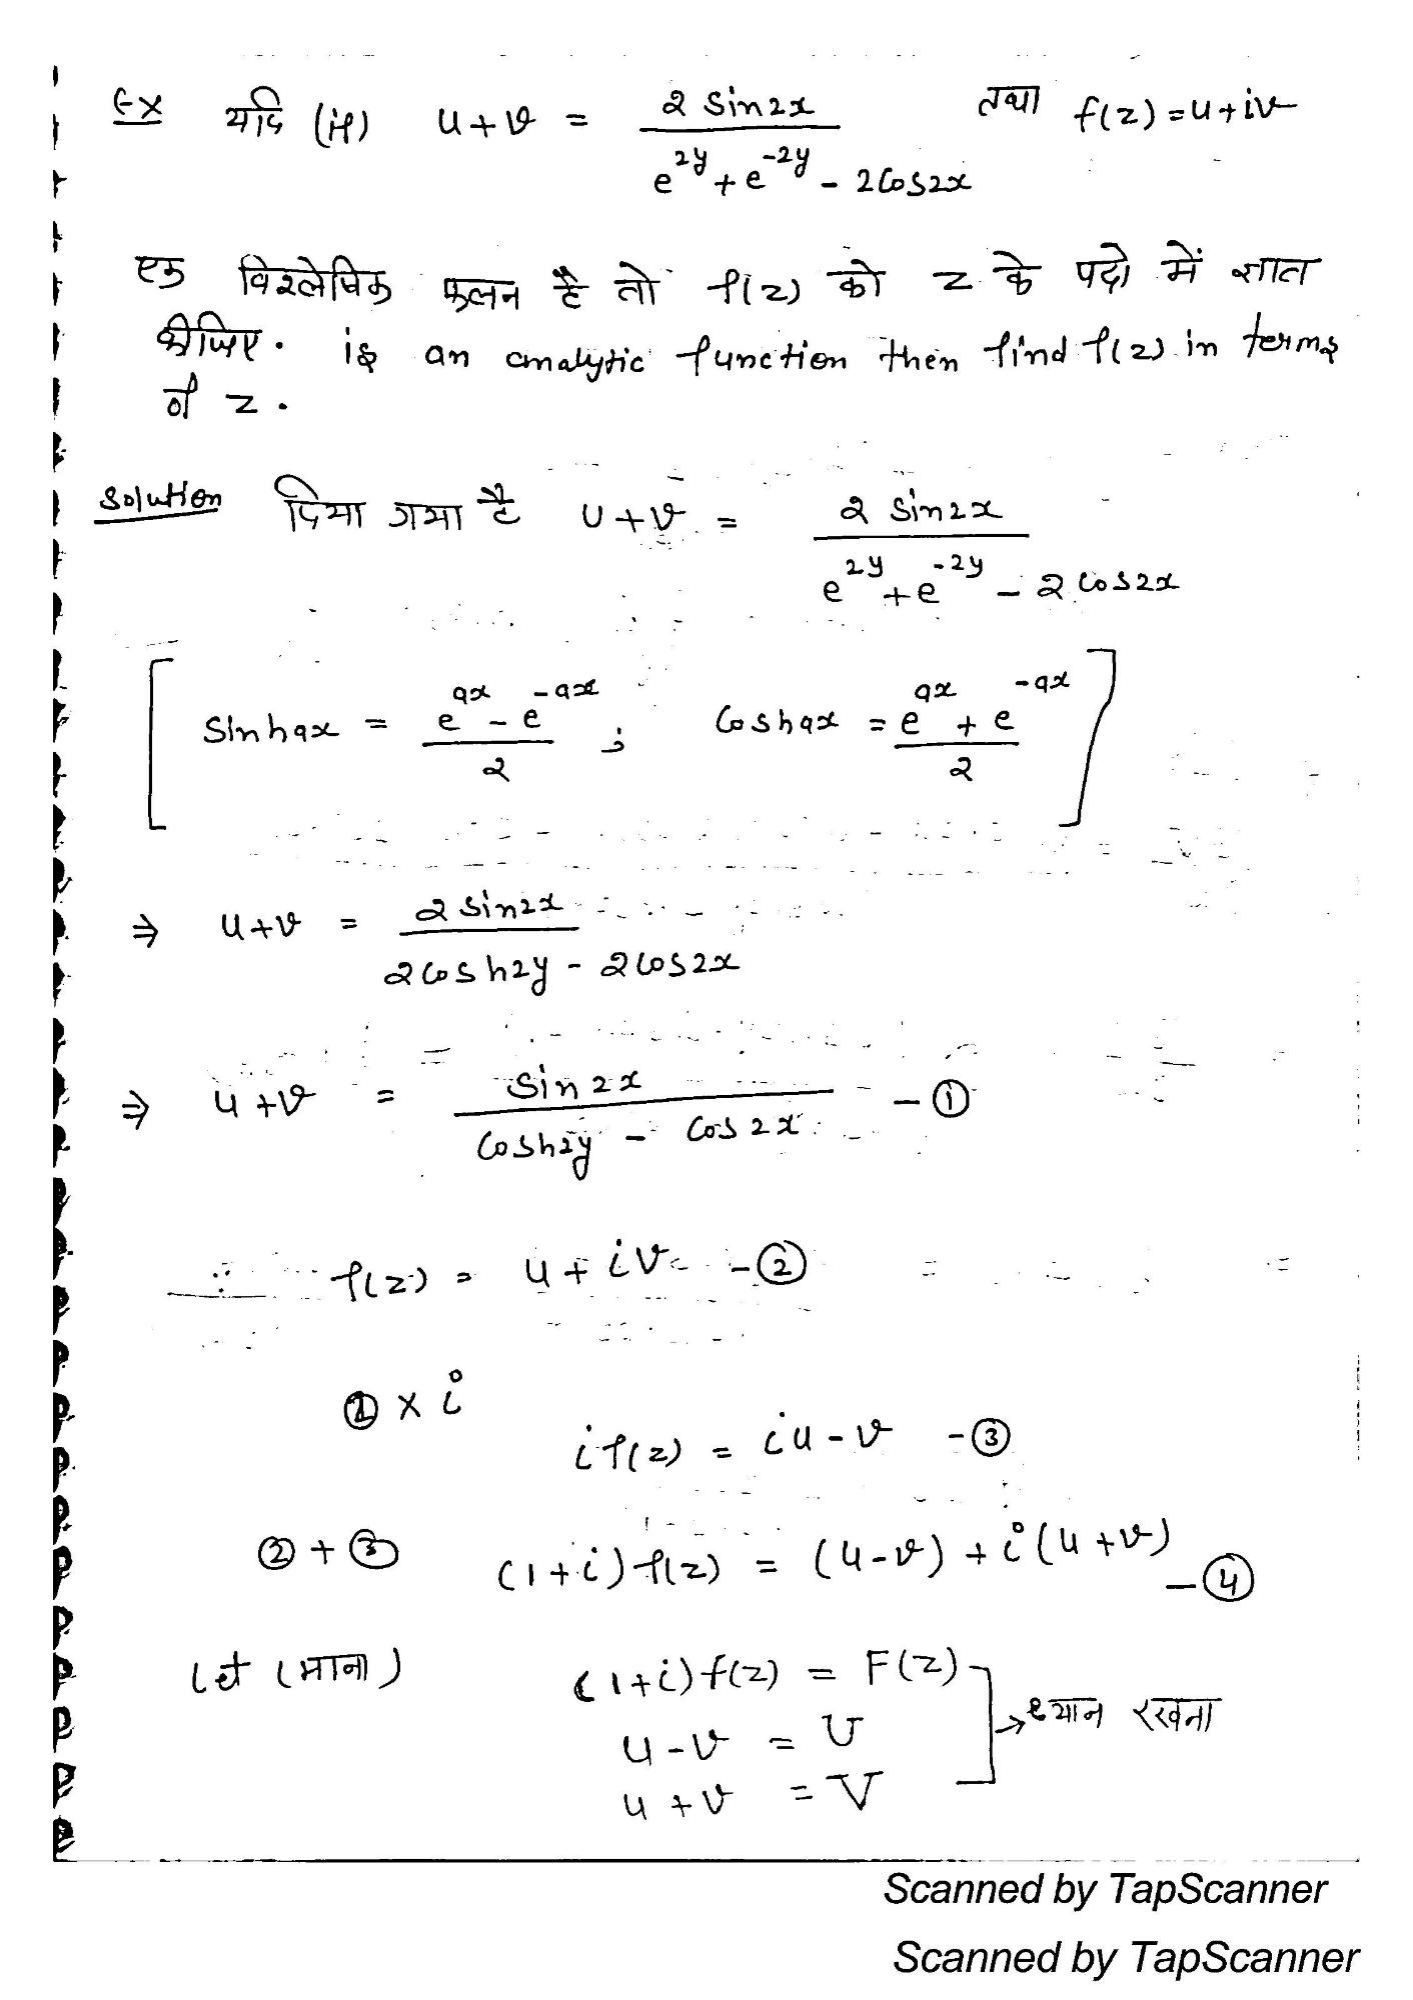 Ex यदि (if) u+v = 2 sin2x / e^2y + e^-2y - 2cos2x तथा f(z) = u+iv
एक विश्लेषिक फलन है तो f(z) को z के पदो में ज्ञात
कीजिए. is an analytic function then find f(z) in terms
of z.
Solution दिया गया है u+v = 2 sin2x / e^2y + e^-2y - 2cos2x
[ Sinhax = e^ax - e^-ax / 2 ; Coshax = e^ax + e^-ax / 2 ]
⇒ u+v = 2 sin2x / 2cosh2y - 2cos2x
⇒ u+v = Sin2x / Cosh2y - Cos2x - ①
∵ f(z) = u + iv - ②
② × i
i f(z) = iu - v - ③
② + ③ (1+i) f(z) = (u-v) + i(u+v) - ④
Let (माना) (1+i) f(z) = F(z)
u-v = U → ध्यान रखना
u+v = V
Scanned by TapScanner
Scanned by TapScanner